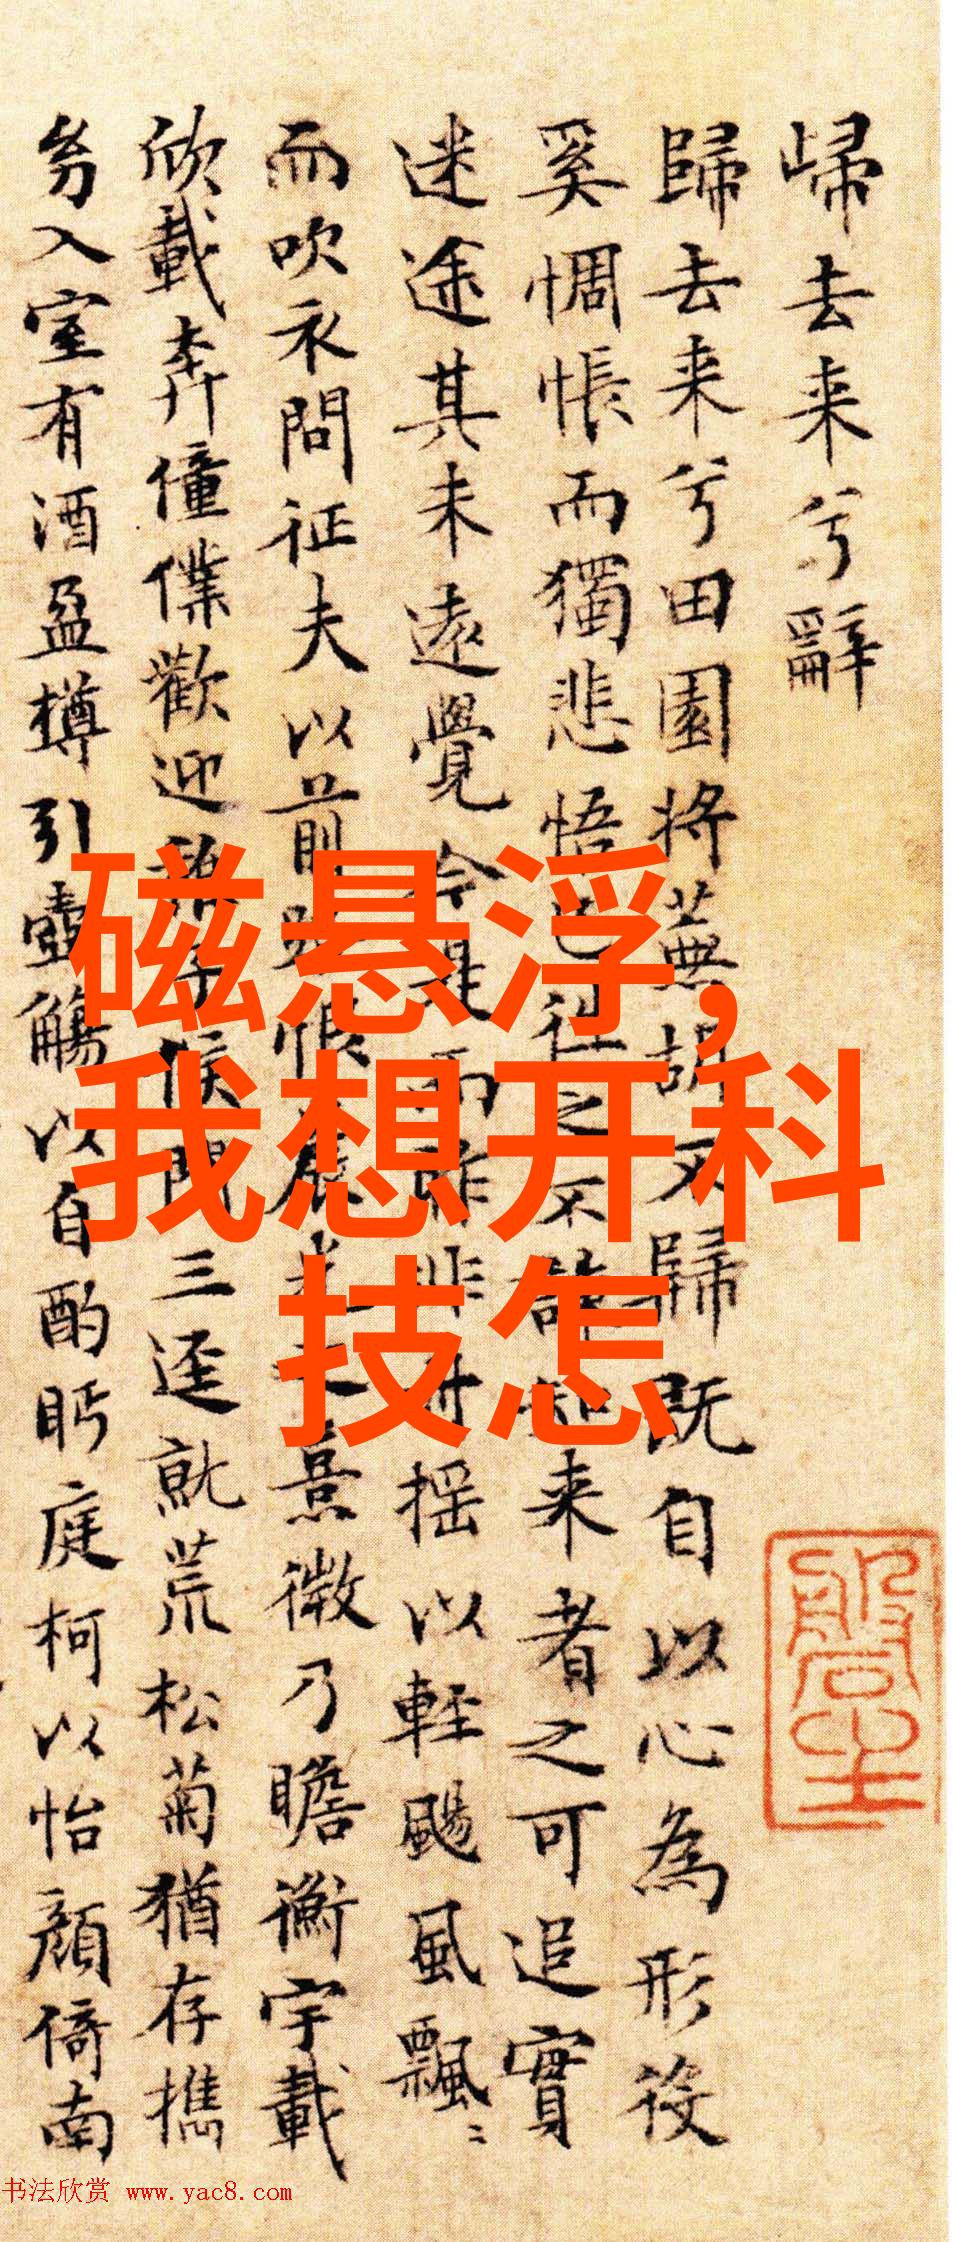 歸去来兮辭
歸去来兮田園将蕪胡不歸既自以心為形役
奚惆悵而獨悲悟已往之不諫知来者之可追實
迷途其未遠覺今是而昨非舟揺以輕颺風飄〻
而吹衣問征夫以前路恨晨光之熹微乃瞻衡宇載
欣載奔僮僕歡迎稚子候門三逕就荒松菊猶存携
幼入室有酒盈樽引壺觴以自酌眄庭柯以怡顔倚南
磁悬浮,
我想开科
技怎
书法欣赏 www.yac8.com